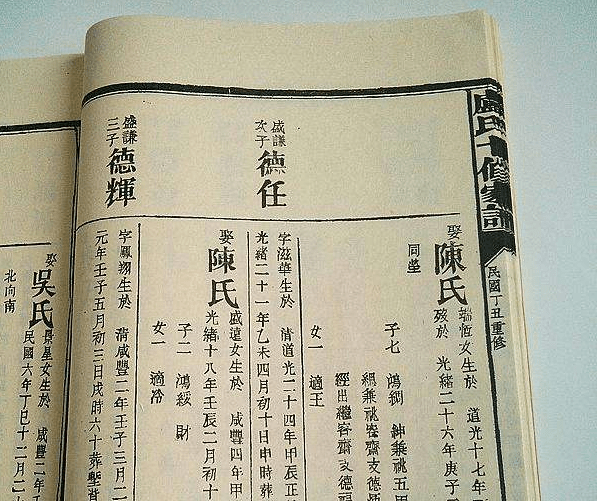 盧氏十修家譜
民國丁丑重修
娶陳氏
瑞恆女生於 道光十七年
歿於 光緒二十六年庚子
同塋
子七 鴻綢 紳兼祧五
絪兼祧客齋支德
經出繼容齋支德
女一 適王
盛謙
次子德任
字滋華生於 清道光二十四年甲辰正
光緒二十一年乙未四月初十日申時葬
娶陳氏
盛遠女生於 咸豐四年甲
光緒十八年壬辰二月初十
子二 鴻綬 財
女一 適冷
盛謙
三子德輝
字鳳翔生於 清咸豐二年壬子三月二
元年壬子五月初三日戌時六十葬塹背
娶吳氏
昌星女生於 咸豐二年
民國六年丁巳十二月二
北向南